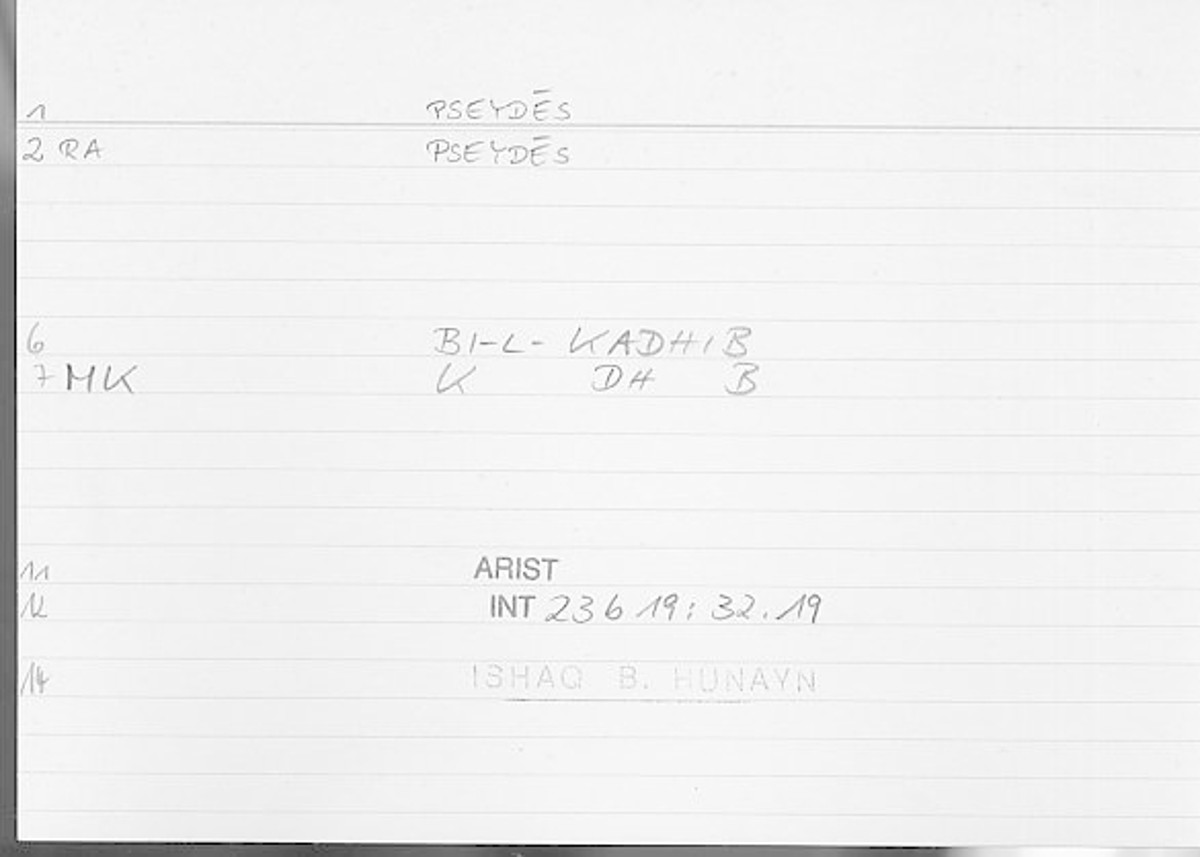 1 PSEYDĒS
2 RA PSEYDĒS
6 BI-L-KADHIB
7 MK K DH B
11 ARIST
12 INT 23 6 19: 32.19
14 ISHAQ B. HUNAYN